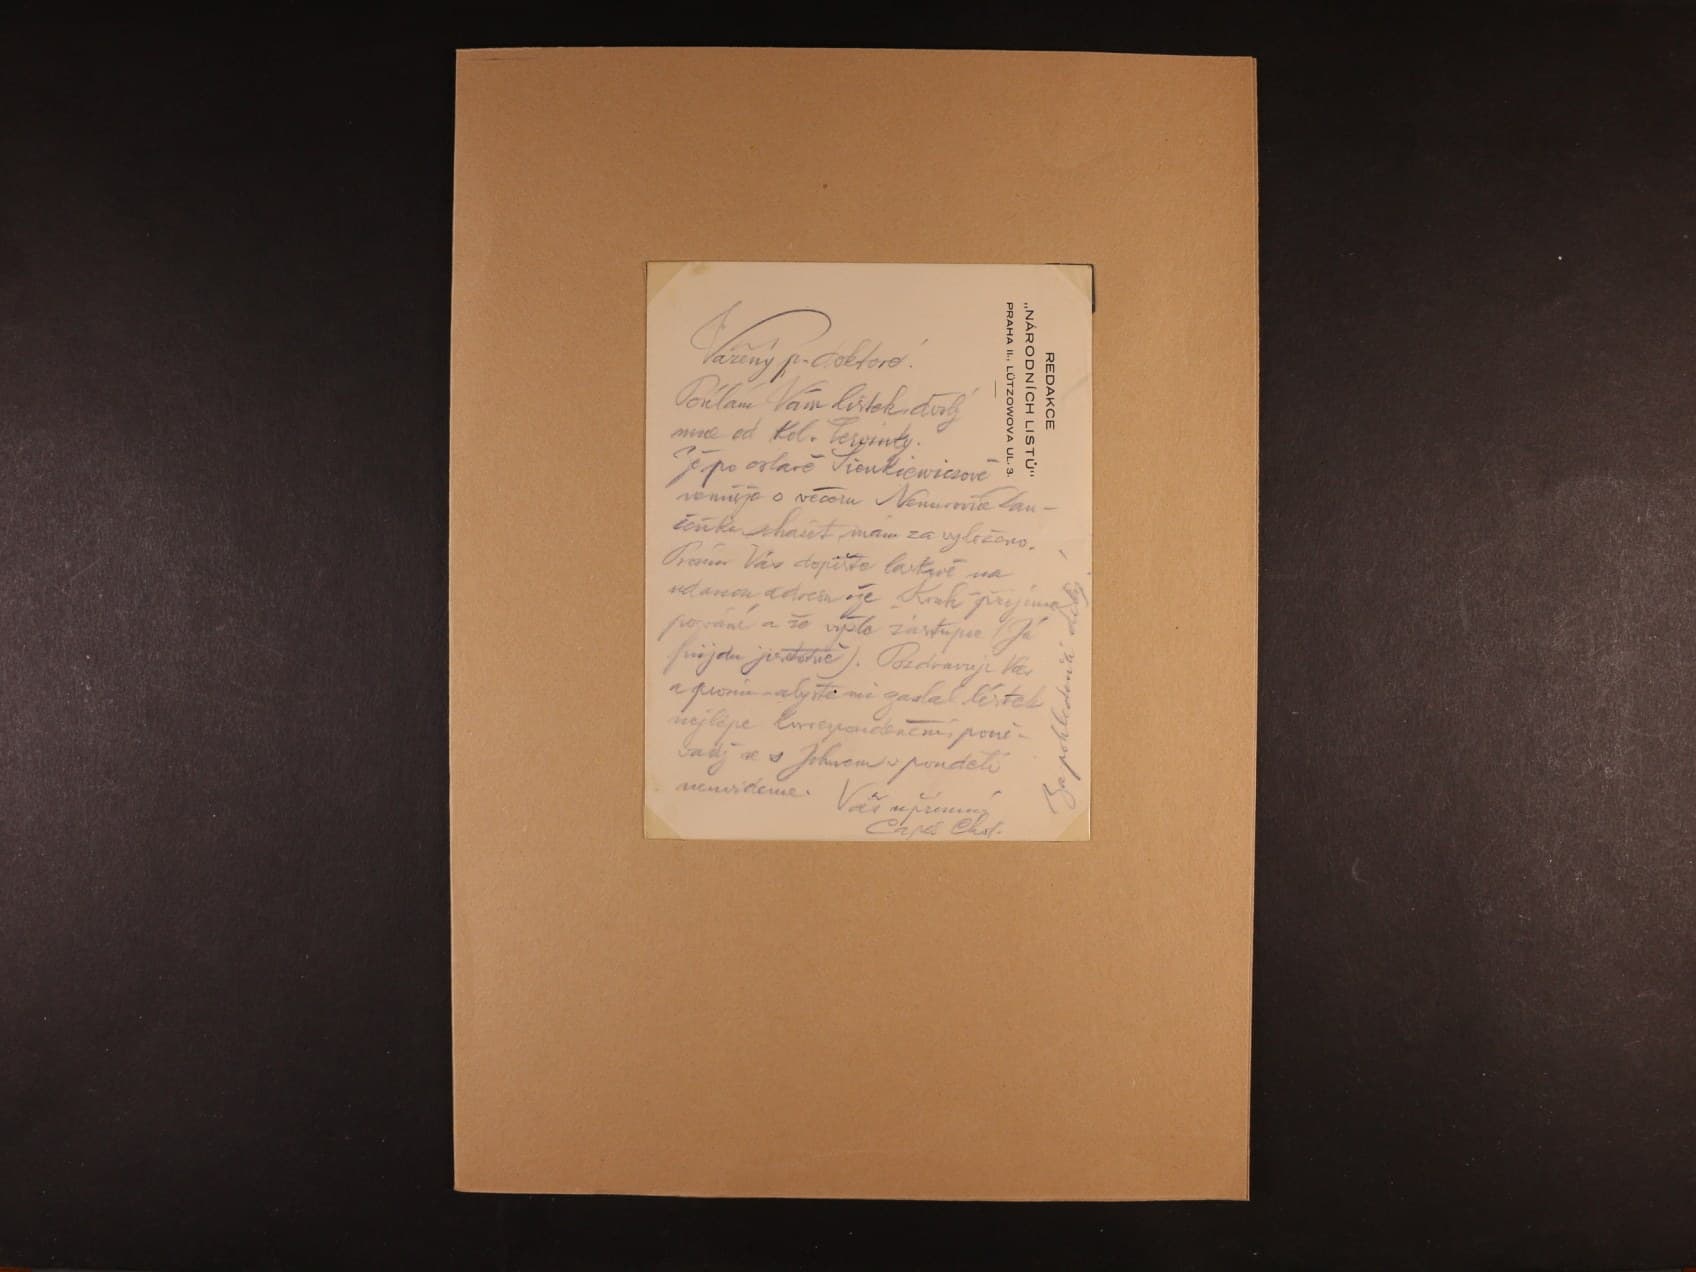 REDAKCE
„NÁRODNÍCH LISTŮ“
PRAHA II., LÜTZOWOVA UL. 3.
Vážený p. doktore!
Posílám Vám lístek, došlý
mne od kol. Červinky.
Je po oslavě Sienkiewiczově
o večeru Nemirovič Dan-
čenka mám za vyloženo.
Prosím Vás dopište laskavě na
udanou adresu že Kruh přijíma
pozvání a že vyšle zástupce (Já
přijdu jistotně). Pozdravuji Vás
a prosím abyste mi zaslal lístek
nejlépe korrespondenční, poně-
vadž se s Johnem v pondělí
neuvidíme.
Váš upřímný
Chot.